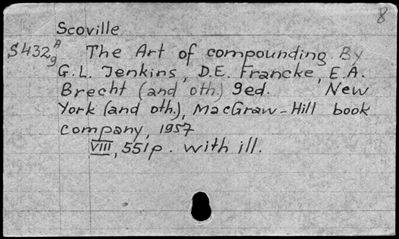 8
Scoville
S432g A The Art of compounding By
G.L. Jenkins, D.E. Francke, E.A.
Brecht (and oth.) 9ed. New
York (and oth.), MacGraw-Hill book
company, 1957
VIII, 551p. with ill.